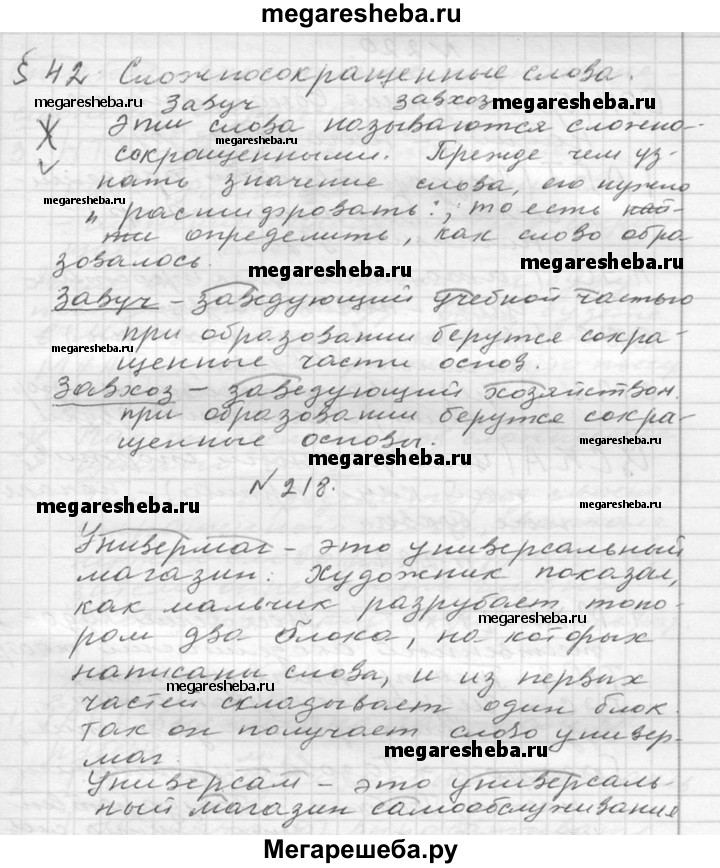 megaresheba.ru
§ 42. Сложносокращенные слова.
megaresheba.ru Завуч завхоз megaresheba.ru
Эти слова называются сложно-
megaresheba.ru
сокращенными. Прежде чем уз-
нать значение слова, его нужно
megaresheba.ru
„расшифровать", то есть най-
ти определить, как слово обра
зовалось.
megaresheba.ru megaresheba.ru
Завуч – заведующий учебной частью
при образовании берутся сокра-
megaresheba.ru
щенные части основ.
Завхоз – заведующий хозяйством.
при образовании берутся сокра-
щенные основы.
megaresheba.ru
№ 218.
megaresheba.ru
Универмаг – это универсальный
магазин. Художник показал,
как мальчик разрубает топо-
ром два блока, на которых
megaresheba.ru
написаны слова, и из первых
megaresheba.ru
частей складывает один блок.
Так он получает слово универ-
маг.
megaresheba.ru
Универсам – это универсаль-
ный магазин самообслуживания
Мегарешеба.ру